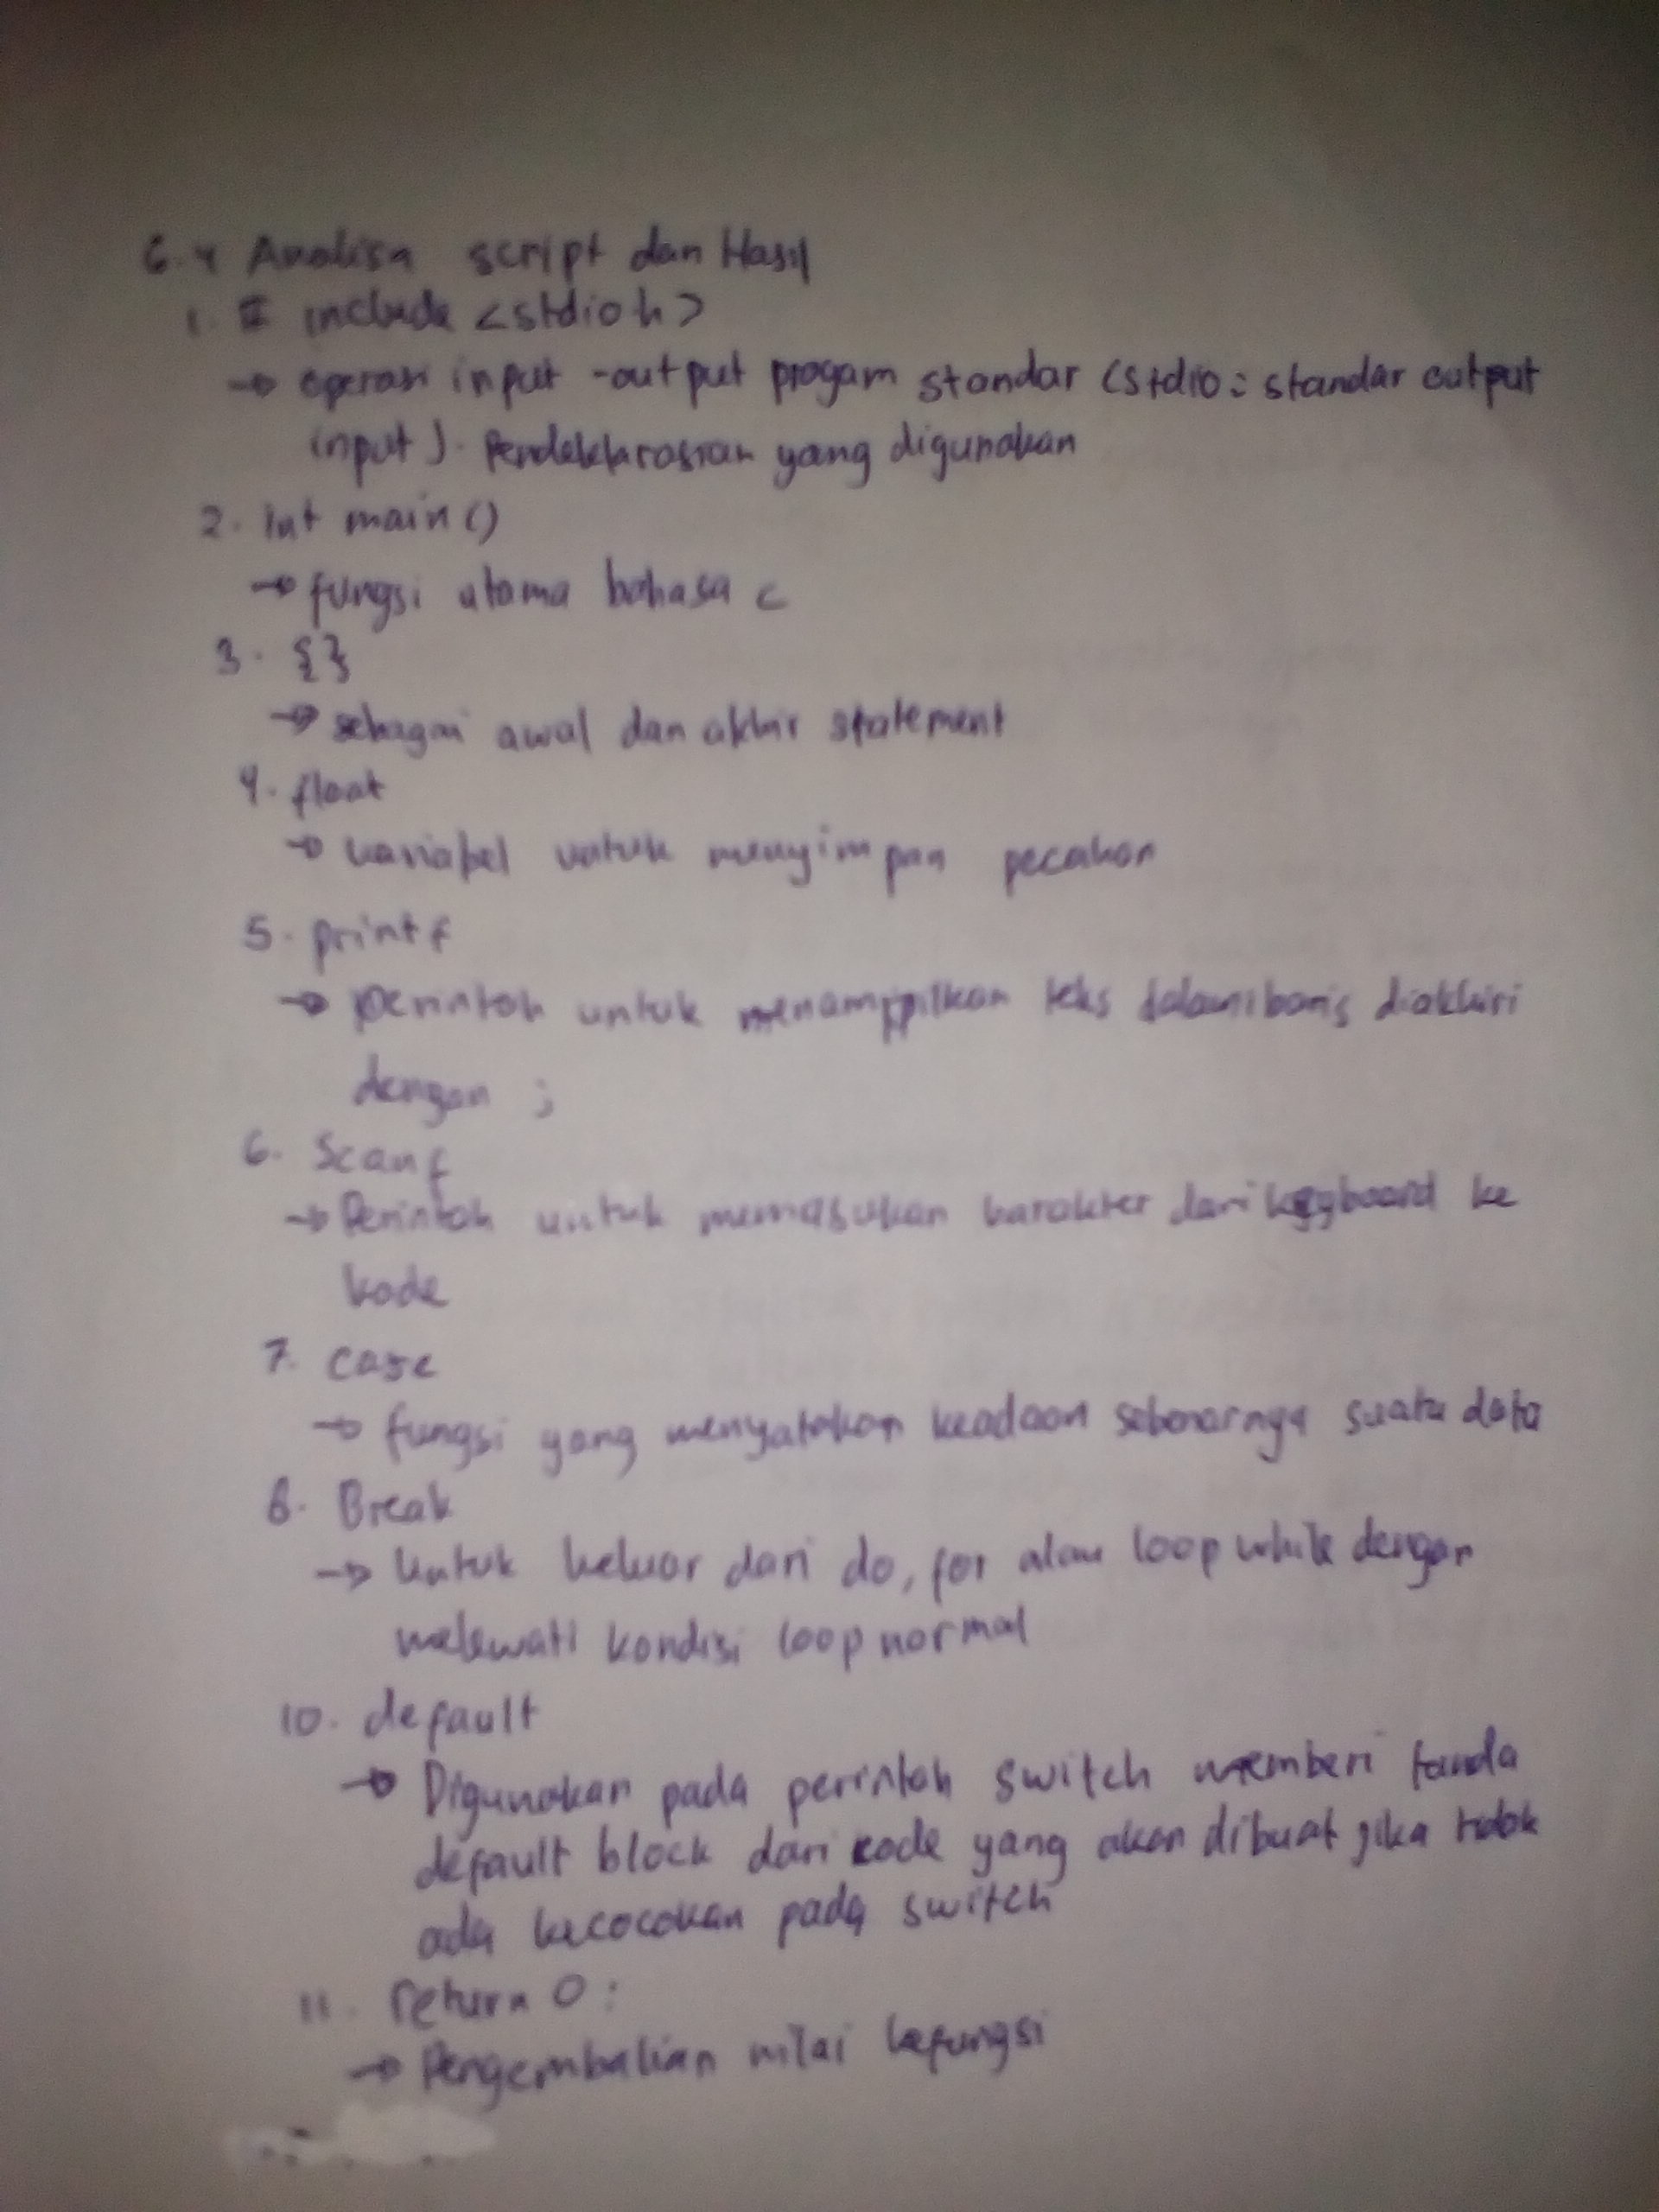 6.4 Analisa script dan Hasil
1. # include <stdio h>
→ operasi input -output progam standar (stdio = standar output
input). Pendeklarasian yang digunakan
2. int main ()
→ fungsi utama bahasa c
3. {}
→ sebagai awal dan akhir statement
4. float
→ variabel untuk menyimpan pecahan
5. printf
→ perintah untuk menampilkan teks dalam baris diakhiri
dengan ;
6. Scanf
→ Perintah untuk memasukan karakter dari keyboard ke
kode
7. case
→ fungsi yang menyatakan keadaan sebenarnya suatu data
8. Break
→ Untuk keluar dari do, for atau loop while dengan
melewati kondisi loop normal
10. default
→ Digunakan pada perintah switch memberi tanda
default block dari code yang akan dibuat jika tidak
ada kecocokan pada switch
11. return 0 ;
→ Pengembalian nilai kefungsi